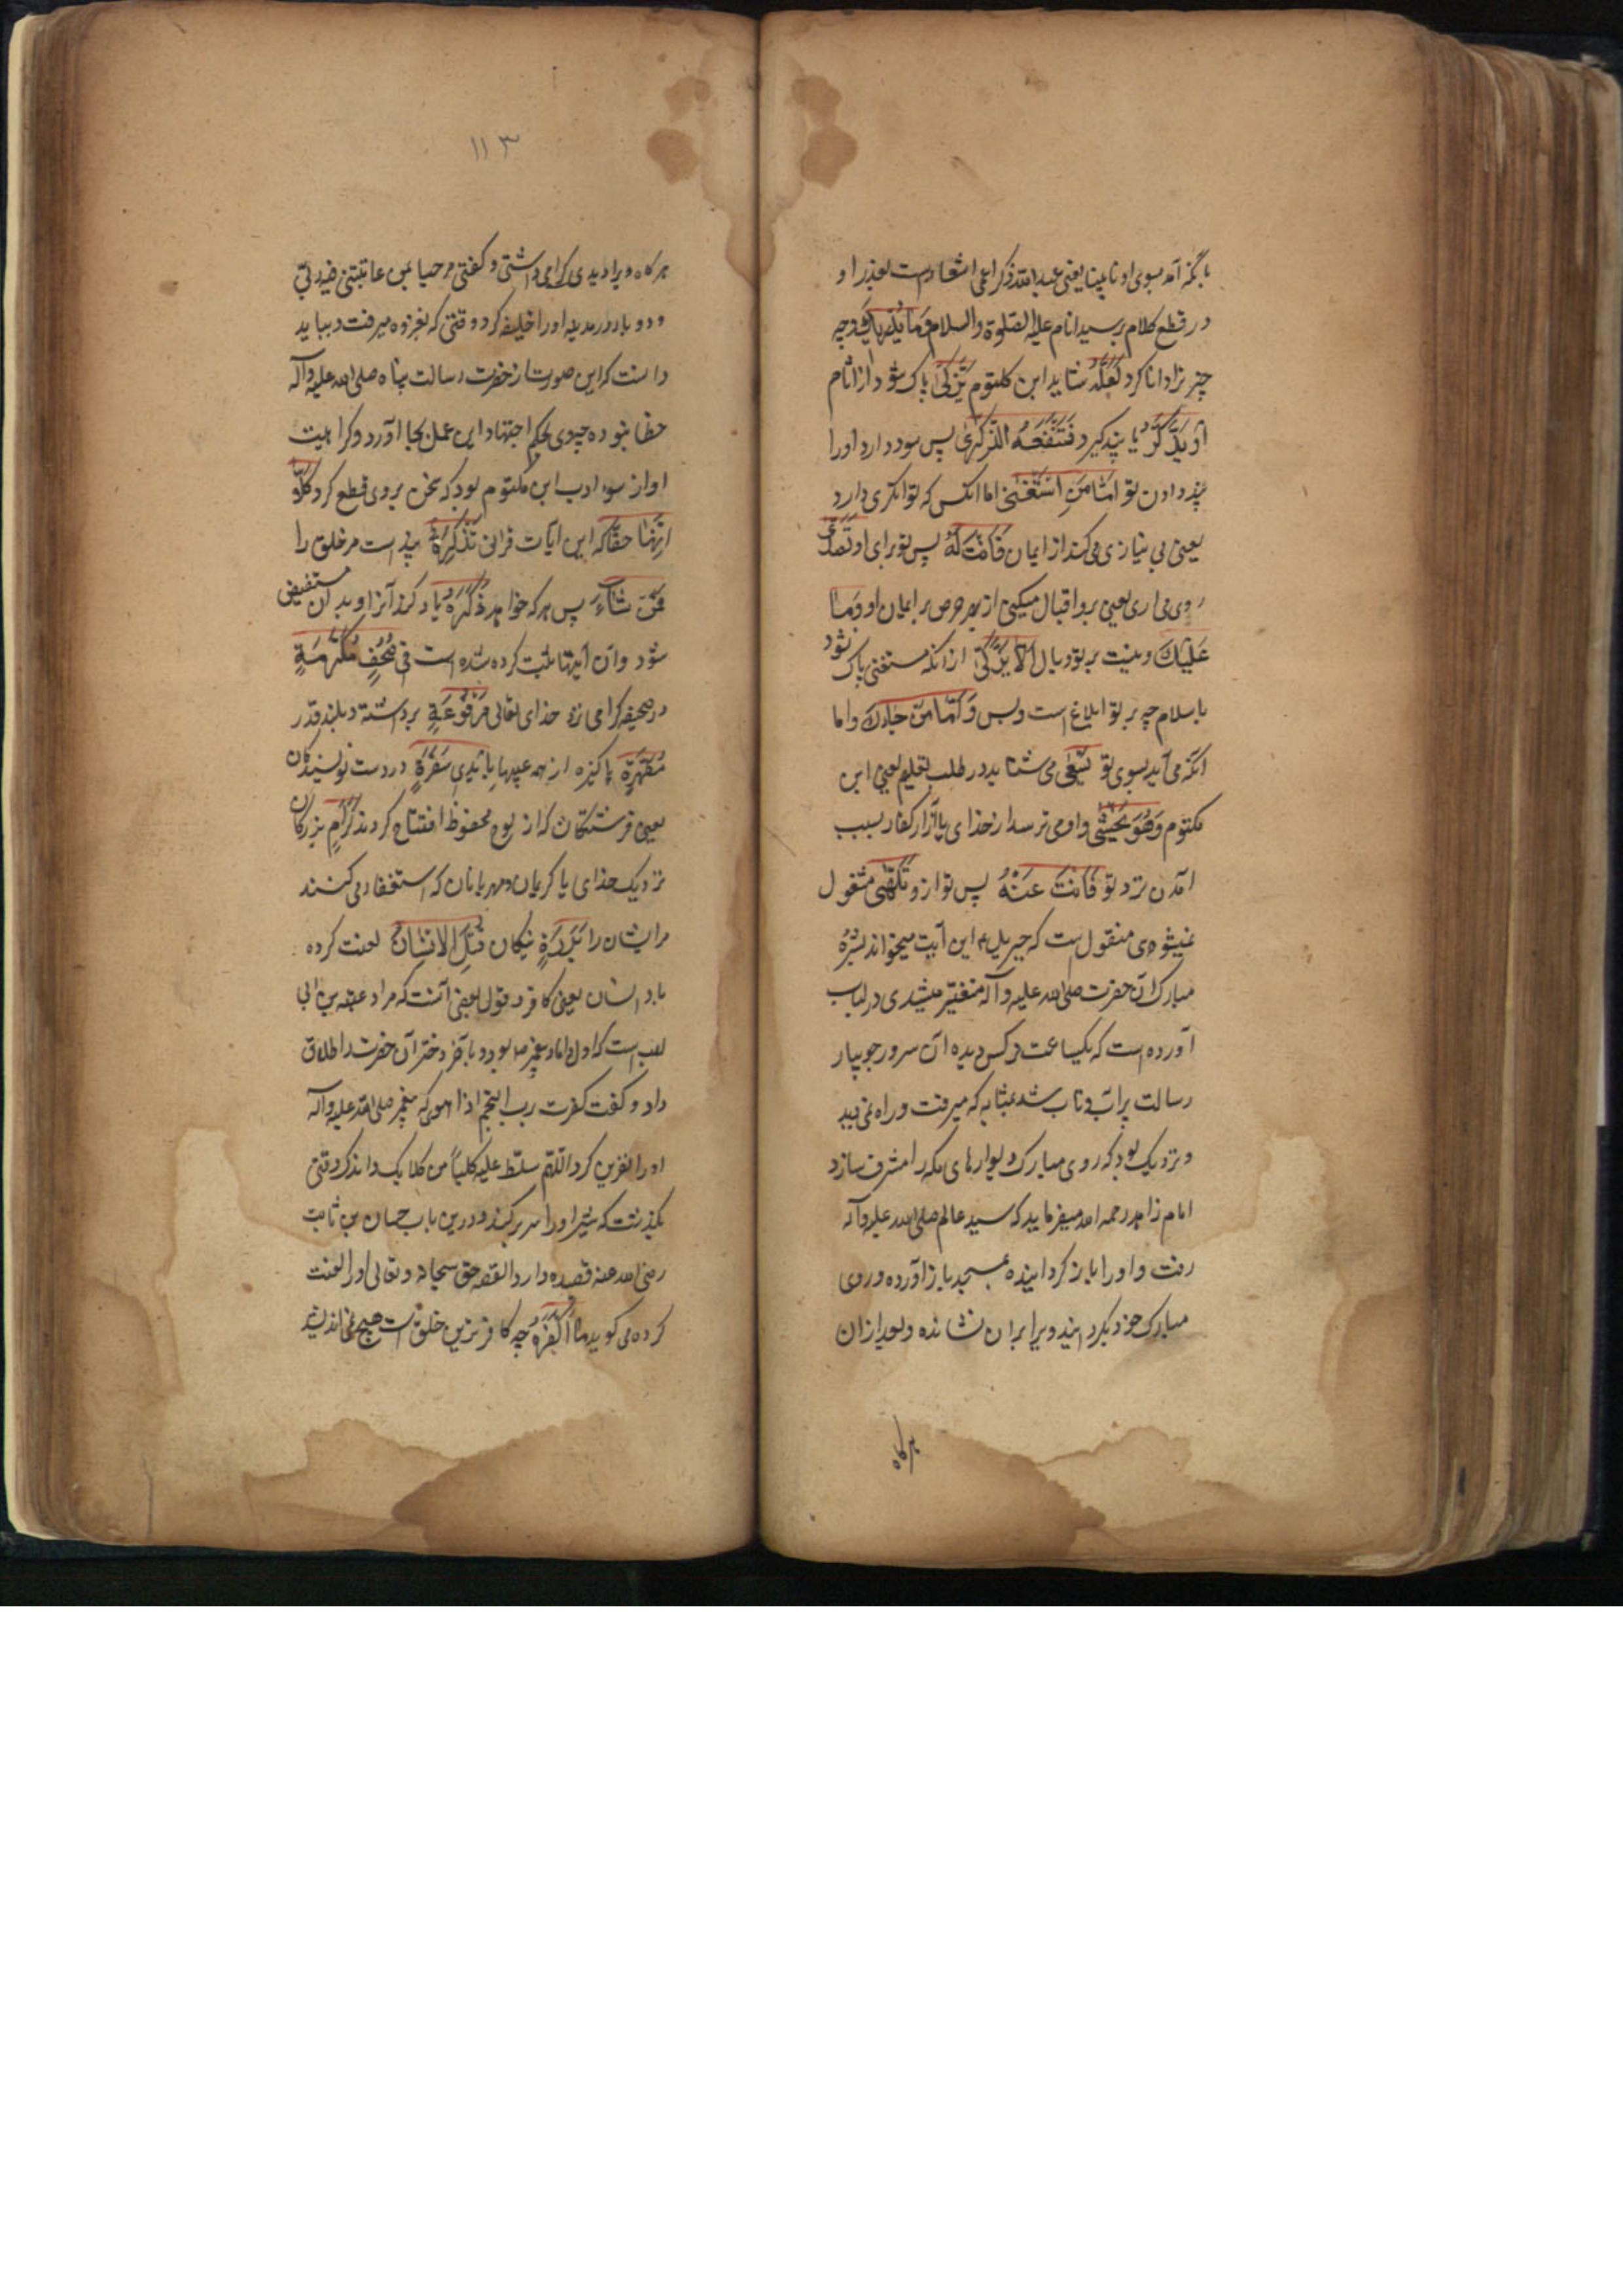 بانکه آمد بسوی او نابینا یعنی عبدالله ذکر اعمی اشعارست بعذر او
در قطع کلام بر سید انام علیه الصلوة والسلام وَمَا یُدْرِیکَ وچه
چیز ترا دانا کرد لَعَلَّهُ شاید ابن مکتوم یَزَّکّیٰ پاک شود از اثام
اَوْ یَذَّکَّرُ یا پند گیرد فَتَنْفَعَهُ الذِّکْرٰی پس سود دارد او را
پند دادن تو اَمَّا مَنِ اسْتَغْنٰی اما انکس که توانگری دارد
یعنی بی نیازی می کند از ایمان فَاَنْتَ لَهُ پس تو برای او تَصَدّٰی
روی می اری یعنی برو اقبال میکنی از بهر حرص بر ایمان او وَمَا
عَلَیْکَ و نیست بر تو وبال اَلّا یَزَّکّٰی ازانکه مستغنی پاک نشود
باسلام چه بر تو ابلاغ است و بس وَاَمَّا مَنْ جَاءَکَ واما
انکه می آید بسوی تو یَسْعٰی می شتابد در طلب تعلیم یعنی ابن
مکتوم وَهُوَ یَخْشٰی و او می ترسد از خدای یا آزار کفار بسبب
آمدن نزد تو فَاَنْتَ عَنْهُ پس تو ازو تَلَهّٰی مشغول
میشوی منقول است که جبریل این آیت میخواند بشره
مبارک آن حضرت صلی الله علیه وآله متغیر میشدی در لباب
آورده است که یکساعت نرکس دیده آن سرور جویبار
رسالت پر آب و تاب شد بمثابه که میرفت و راه نمی دید
و نزدیک بود که روی مبارک دیوارهای مکه را مشرف سازد
امام زاهد رحمه الله میفرماید که سید عالم صلی الله علیه وآله
رفت و او را باز کردانیده بمسجد باز آورده و روی
مبارک خود بکردانید و بر ابران نشانده و بعد ازان
هرگاه
۱۱۳
هرگاه ویرا دیدی گرامی داشتی و گفتی مرحبا بمن عاتبنی فیه ربی
و دو بار در مدینه او را خلیفه کرد وقتی که بغزوه میرفت و بباید
دانست که این صورت از حضرت رسالت پناه صلی الله علیه وآله
خطا نبوده چه وی بحکم اجتهاد این عمل بجا آورد و کراهیت
او از سوء ادب ابن مکتوم بود که سخن بر وی قطع کرد کَلَّا
اِنَّهَا حقا که این آیات قران تَذْکِرَةٌ پند است مر خلق را
فَمَنْ شَاءَ پس هر که خواهد ذَکَرَهُ یاد کند آنرا و بدان مستفیض
شود و آن آیتها ثبت کرده شده است فِی صُحُفٍ مُکَرَّمَةٍ
در صحیفه گرامی نزد خدای تعالی مَرْفُوعَةٍ برداشته و بلند قدر
مُطَهَّرَةٍ پاکیزه از همه عیبها بِاَیْدِی سَفَرَةٍ در دست نویسندکان
یعنی فرشتگان که از لوح محفوظ افتتاح کردند کِرَامٍ بزرگان
نزدیک خدای یا کریمان و مهربانان که استغفار می کنند
مر ایشان را بَرَرَةٍ نیکان قُتِلَ الْاِنْسَانُ لعنت کرده
باد انسان یعنی کافر و قول بعضی آنست که مراد عتبه بن ابی
لهب است که اول داماد پیغمبر بود و بآخر دختر آن حضرت را طلاق
داد و گفت کفرت برب النجم اذا هوی که پیغمبر صلی الله علیه وآله
او را نفرین کرد اللهم سلط علیه کلباً من کلابک و اندک وقتی
بگذشت که شیر او را سر بر کند و درین باب حسان بن ثابت
رضی الله عنه قصیده دارد القصه حق سبحانه و تعالی او را لعنت
کرده می گوید مَا اَکْفَرَهُ چه کافرترین خلق است هیچ نمی اندیشد